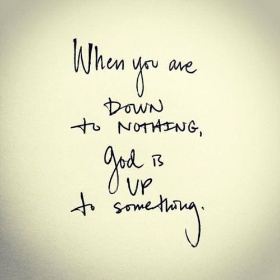 When you are
DOWN
to NOTHING,
god is
UP
to something.